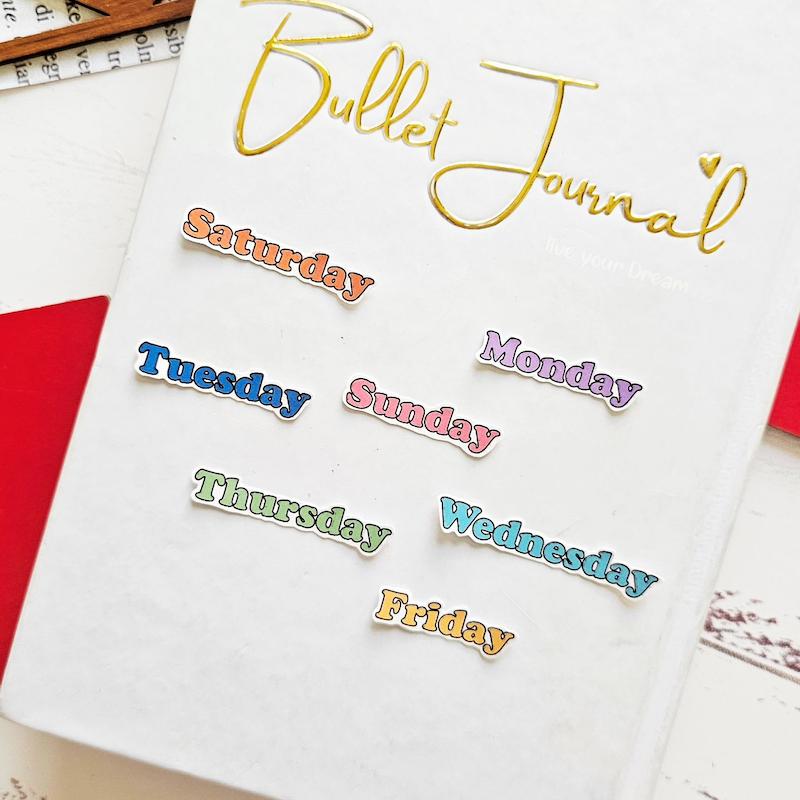 Bullet Journal
live your Dream
Saturday
Monday
Tuesday
Sunday
Thursday
Wednesday
Friday